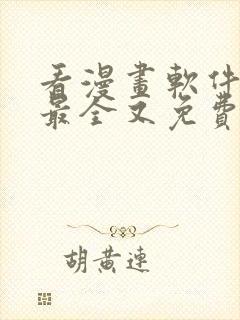 看漫畫軟件
最全又免費
胡黃連